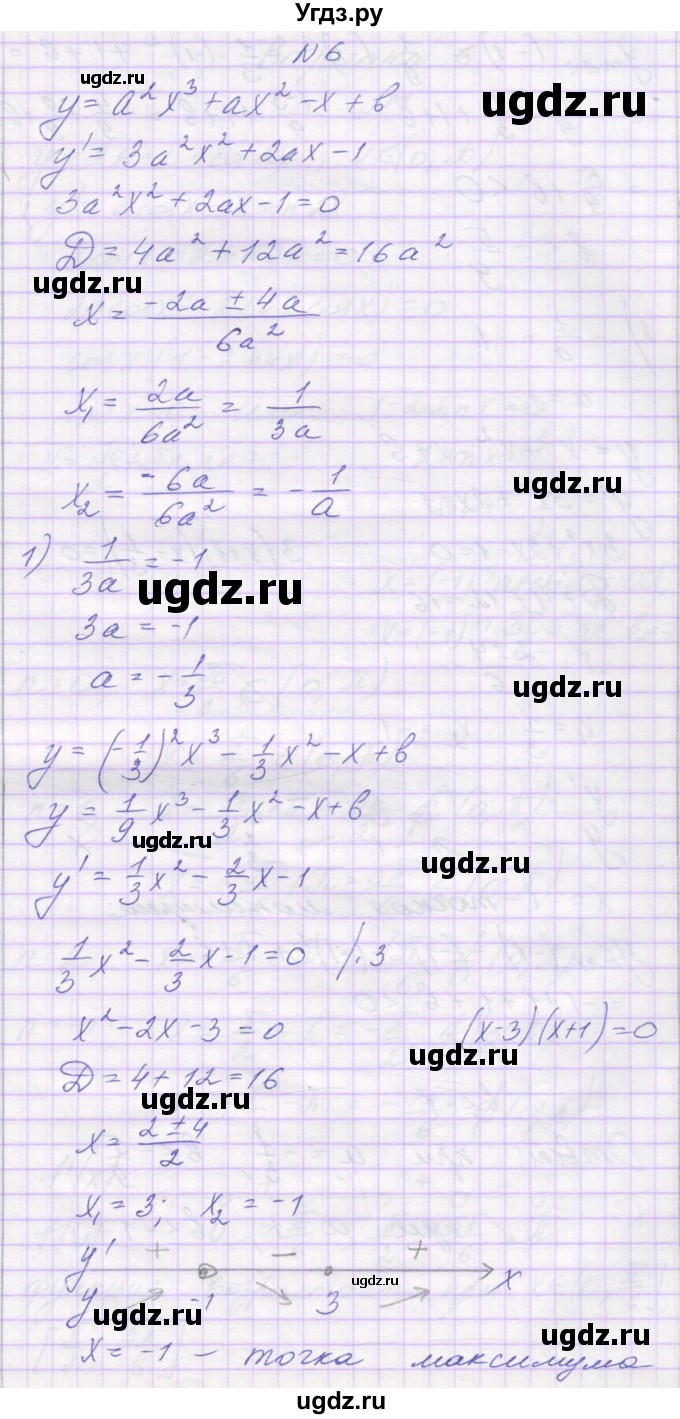 Угдз.ру
N 6
y = a²x³ + ax² - x + b
ugdz.ru
ugdz.ru
y' = 3a²x² + 2ax - 1
3a²x² + 2ax - 1 = 0
Д = 4a² + 12a² = 16a²
ugdz.ru
x = (-2a ± 4a)/(6a²)
x₁ = 2a/(6a²) = 1/(3a)
x₂ = -6a/(6a²) = -1/a
ugdz.ru
1) 1/(3a) = -1
ugdz.ru
3a = -1
a = -1/3
ugdz.ru
y = (-1/3)²x³ - 1/3x² - x + b
y = 1/9x³ - 1/3x² - x + b
ugdz.ru
y' = 1/3x² - 2/3x - 1
1/3x² - 2/3x - 1 = 0 /·3
x² - 2x - 3 = 0 (x-3)(x+1) = 0
ugdz.ru
Д = 4 + 12 = 16
ugdz.ru
x = (2 ± 4)/2
x₁ = 3; x₂ = -1
y' + - +
ugdz.ru
x
y -1 3
ugdz.ru
ugdz.ru
x = -1 – точка максимума
ugdz.ru